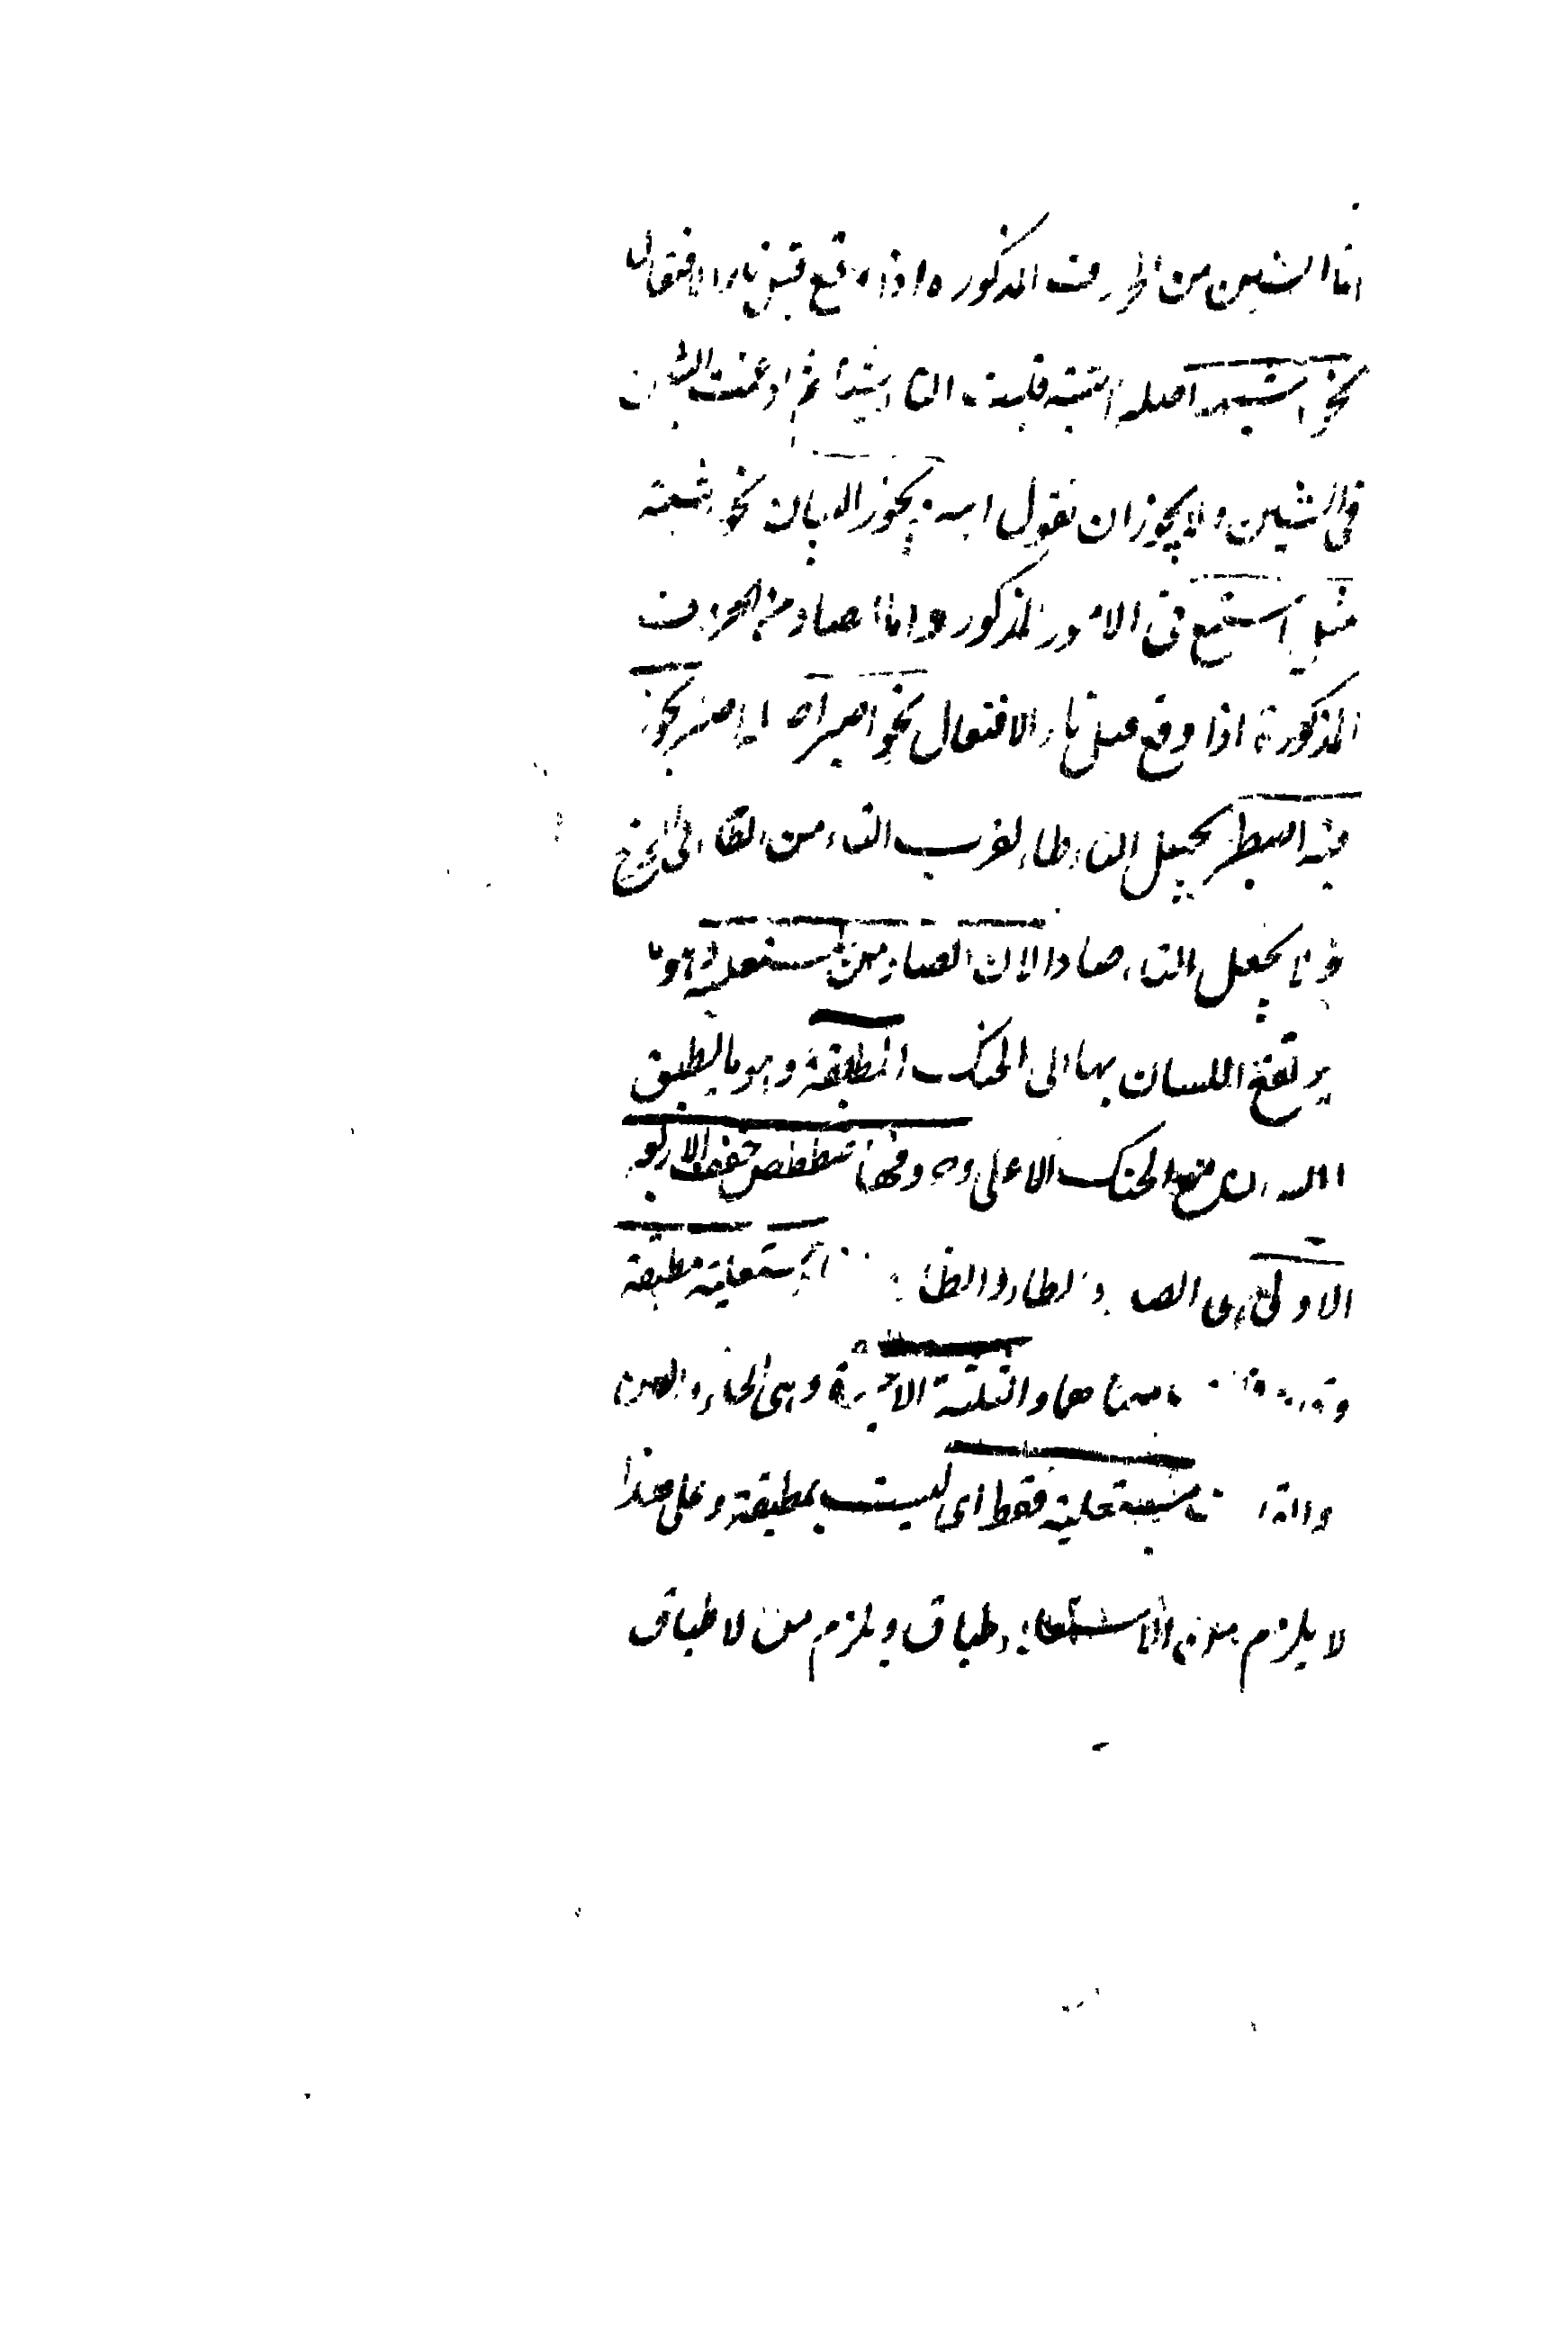 اما الشين من الحروف المذكوره اذا وقع قبل تاء الافتعال
نحو اشبه اصله اشتبه قلبت التاء شينا ثم ادغمت الشين
فى الشين ولا يجوز ان نقول يجوز البيان نحو اشتبه
مثل استمع فى الامور المذكور واما الصاد من الحروف
المذكورة اذا وقع قبل تاء الافتعال نحو اصبر يجوز
فيه اصطبر يجعل التاء طاء لقرب التاء من الطاء فى المخرج
يجعل التاء صادا لان الصاد من المستعلية وهو ما
يرتفع اللسان بها الى الحنك المطبقة وهو ما يطبق
اللسان مع الحنك الاعلى وحروفها صططص خغق الاربعة
الاولى اى الصاد والطاء والظاء مستعلية مطبقة
والثلثة الاخيرة وهى الخاء والغين
والقاف مستعلية فقط اى ليست بمطبقة وعلى هذا
لا يلزم من الاستعلاء اطباق ويلزم من الاطباق